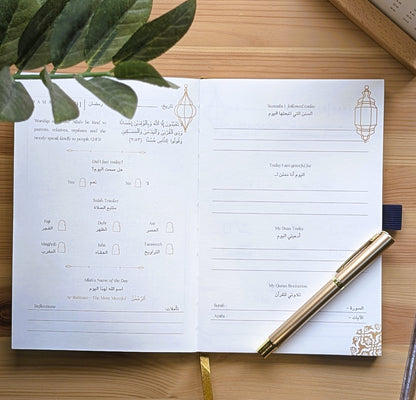 رمضان | 01
تاريخ:
Worship
Allah be kind to
parents, relatives, orphans and the
needy speak kindly to people. (2:83)
Did I fast today?
هل صمت اليوم؟
Yes نعم
No لا
Salah Tracker
متابع الصلاة
Fajr الفجر
Dhuhr الظهر
Asr العصر
Maghrib المغرب
Isha العشاء
Taraweeh التراويح
Allah's Name of the Day
اسم الله لهذا اليوم
Ar-Rahman - The Most Merciful
الرحمن
Reflections:
تأملات:
Sunnahs I followed today
السنن التي اتبعتها اليوم
Today I am grateful for
اليوم أنا ممتن لـ
My Duas Today
أدعيتي اليوم
My Quran Recitation
تلاوتي للقرآن
Surah - السورة -
Ayahs - الآيات -